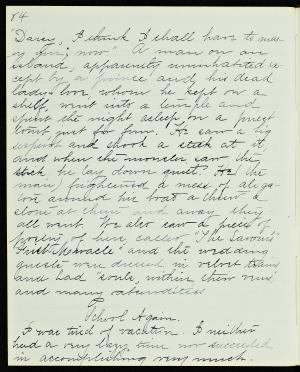 84
Daisy, I think I shall have to
now." A man on an
island, apparently uninhabited ex-
cept by a prince and his dead
lady-love, whom he kept on a
shelf, went into a temple and
spent the night asleep on a priest
just for fun. He saw a big
serpent and shook a stick at it,
and when the monster saw the
stick, he lay down quiet. He (the
man) frightened a mess of alliga-
tors around his boat a threw a
stone at them and away they
all went. We also saw a piece of
, called, "The Saviour's
First Miracle" and the wedding
guests were dressed in velvet trains
and had
and many absurdities.
School Again.
I was tired of vacation. I neither
had a very busy time nor succeeded
in accomplishing very much.